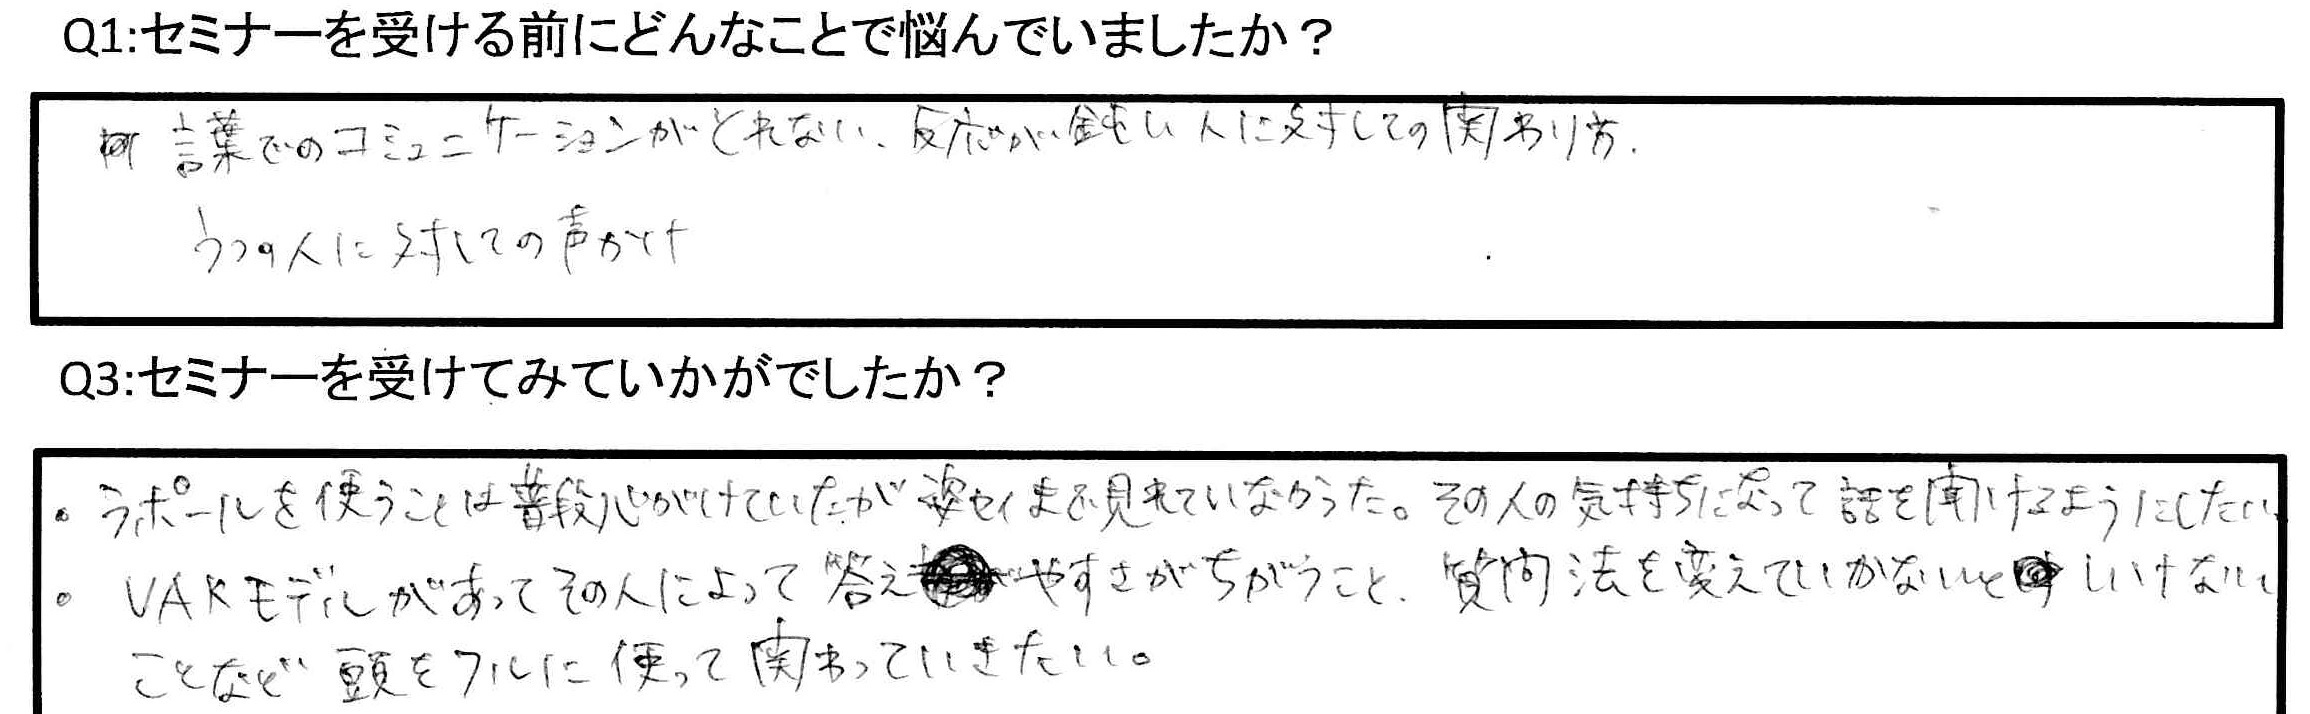 Q1:セミナーを受ける前にどんなことで悩んでいましたか？
言葉でのコミュニケーションがとれない、反応が鈍い人に対しての関わり方.
うつの人に対しての声かけ
Q3:セミナーを受けてみていかがでしたか？
・ラポールを使うことは普段心がけていたが姿セイまで見れていなかった。その人の気持ちになって話を聞けるようにしたい
・VAKモデルがあってその人によって答えやすさがちがうこと、質問法を変えていかないといけない
ことなど頭をフルに使って関わっていきたい。